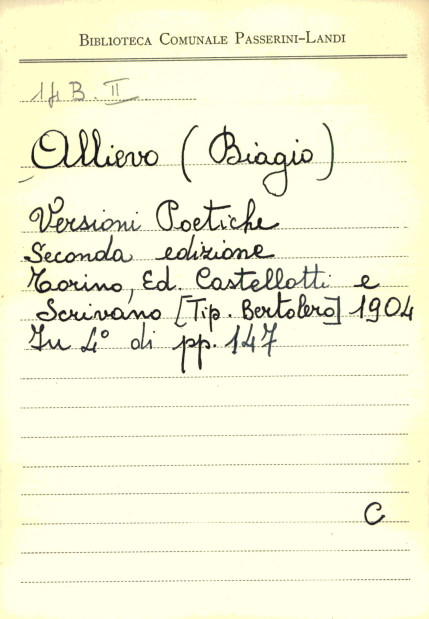 BIBLIOTECA COMUNALE PASSERINI-LANDI
14 B. II
Allievo (Biagio)
Versioni Poetiche
Seconda edizione
Torino, Ed. Castellotti e
Scrivano [Tip. Bertolero] 1904
In 4° di pp. 147
C